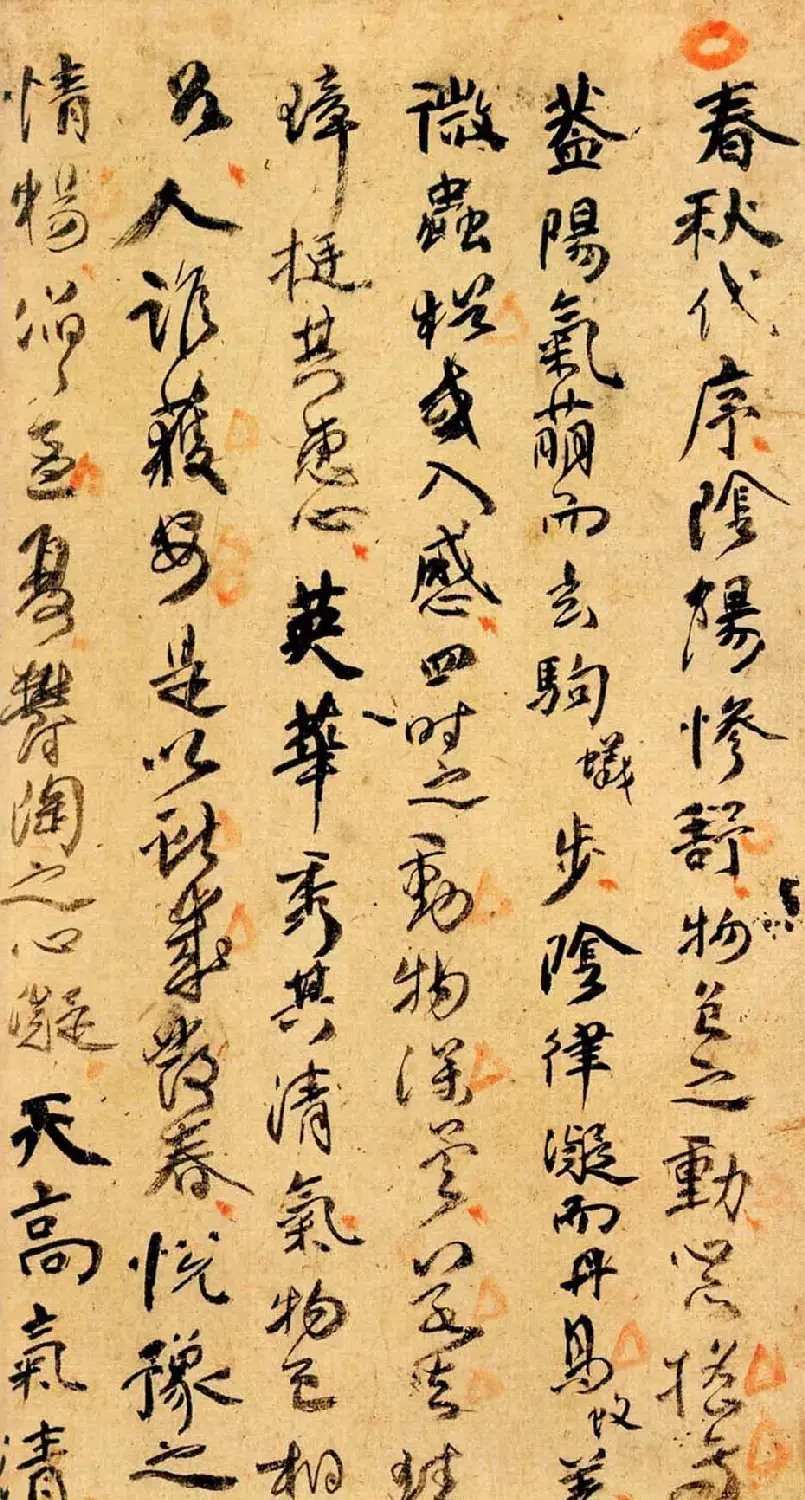 春秋代序陰陽慘舒物色之動心亦搖焉
蓋陽氣萌而玄駒蟻步陰律凝而丹鳥蚊羞
微蟲猶或入感四時之動物深矣若夫珪
璋挺其惠心英華秀其清氣物色相
召人誰獲安是以獻歲發春悅豫之
情暢滔滔孟夏鬱陶之心凝天高氣清